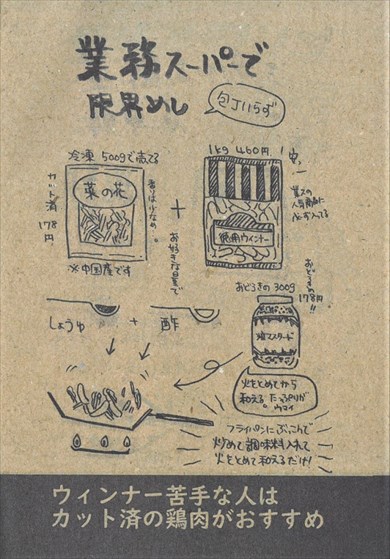 業務スーパーで
限界めし
包丁いらず
冷凍 500gで売てる
カット済
178円
菜の花
※中国産です
お好きな量で
1kg 460円!
徳用ウィンナー
しょうゆ
+
酢
おどろきの 300g
おどろきの
178円!!
粒マスタード
火をとめてから
和える たっぷりが
ウマイ
フライパンにぶっこんで
炒めて調味料入れて
火をとめて和えるだけ!
ウィンナー苦手な人は
カット済の鶏肉がおすすめ